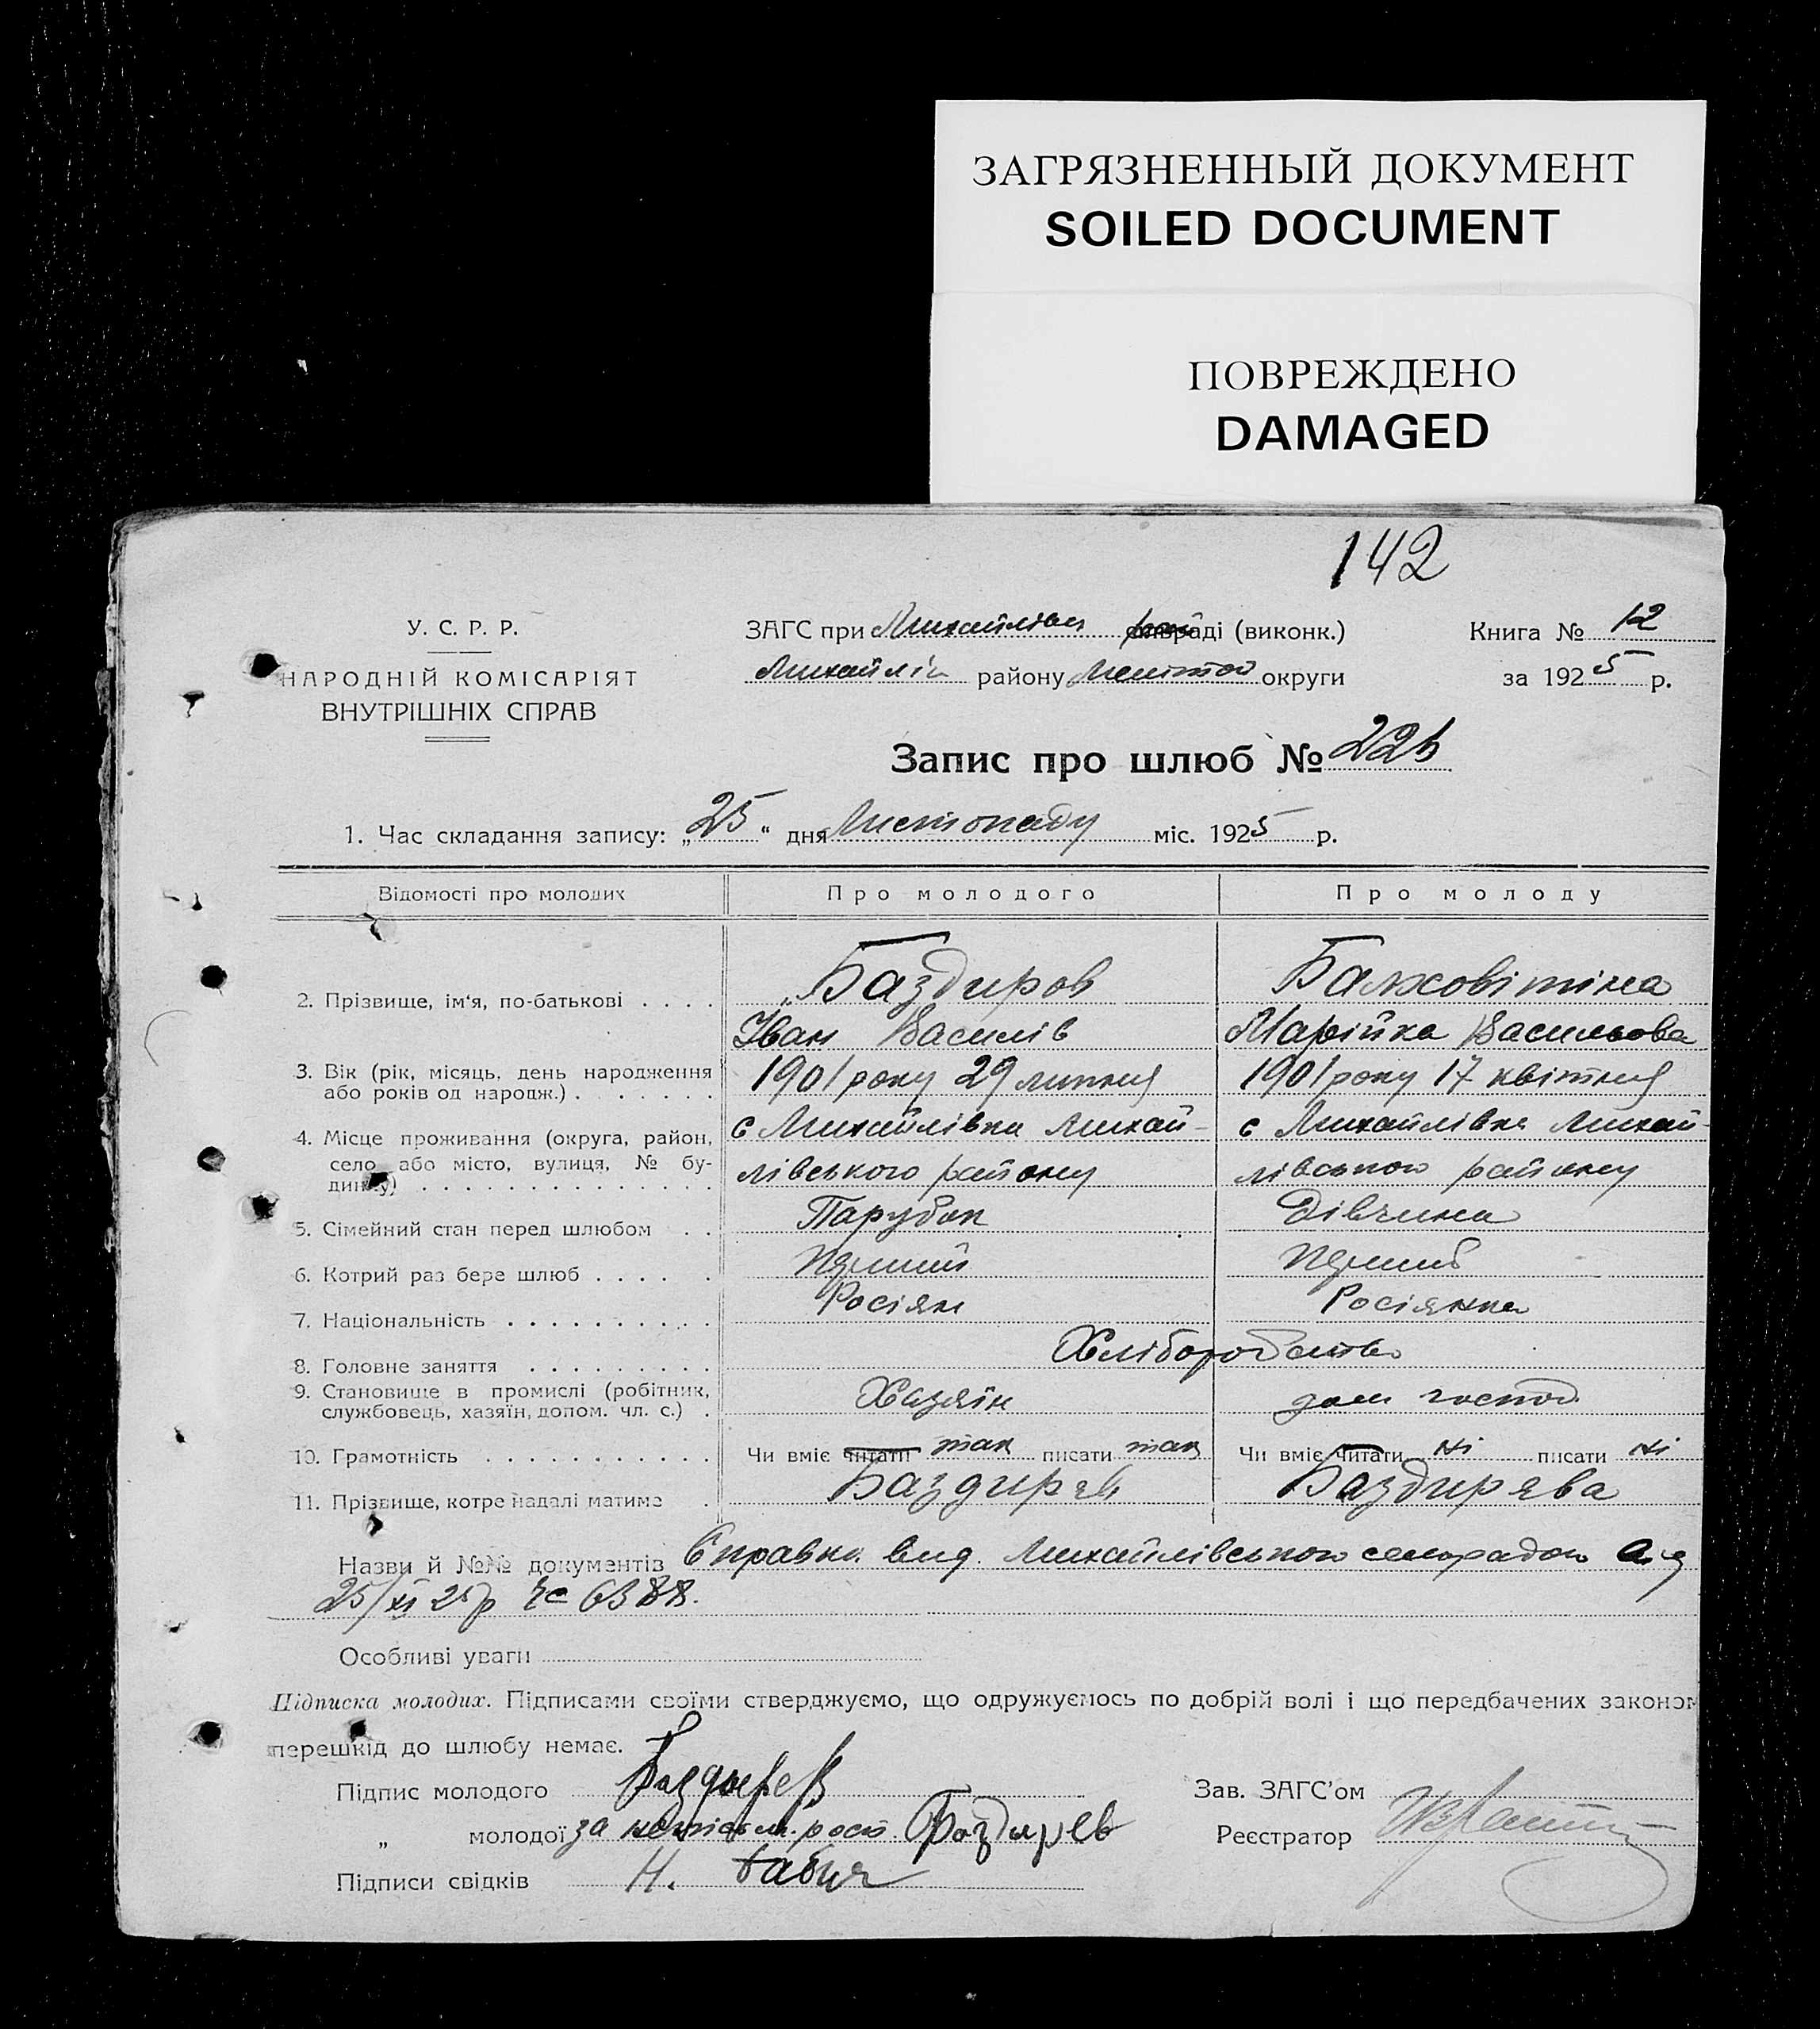 ЗАГРЯЗНЕННЫЙ ДОКУМЕНТ
SOILED DOCUMENT
ПОВРЕЖДЕНО
DAMAGED
142
У. С. Р. Р.
НАРОДНІЙ КОМІСАРІЯТ
ВНУТРІШНІХ СПРАВ
ЗАГС при Михайлівск раді (виконк.)
району округи
Книга № 12
за 1925 р.
Запис про шлюб №
1. Час складання запису: „25“ дня Листопаду міс. 1925 р.
Відомості про молодих Про молодого Про молоду
2. Прізвище, ім‘я, по-батькові . . . . Баздиров Бажовітіна
Іван Василів Марійка Васильова
3. Вік (рік, місяць, день народження або років од народж.) . . . . . . . 1901 року 29 липня 1901 року 17 квітня
4. Місце проживання (округа, район, село або місто, вулиця, № будинку) . . . . . . . . . . . . . . с Михайлівка Михай- с Михайлівка Михай-
лівського району лівського району
5. Сімейний стан перед шлюбом . . Парубок Дівчина
6. Котрий раз бере шлюб . . . . . Перший Перший
7. Національність . . . . . . . . . . Росіян Росіянка
8. Головне заняття . . . . . . . . . Хліборобство
9. Становище в промислі (робітник, службовець, хазяїн, допом. чл. с.) . Хазяїн дом господ.
10. Грамотність . . . . . . . . . . . Чи вміє читати так писати так Чи вміє читати ні писати ні
11. Прізвище, котре надалі матиме . Баздирев Баздирева
Назви й №№ документів Справка вид. Михайлівською сельрадою
25/XI 25р
Особливі уваги
Підписка молодих. Підписами своїми стверджуємо, що одружуємось по добрій волі і що передбачених законом
перешкід до шлюбу немає.
Підпис молодого Баздырев
„ молодої за Баздырев
Підписи свідків Н.
Зав. ЗАГС’ом
Реєстратор